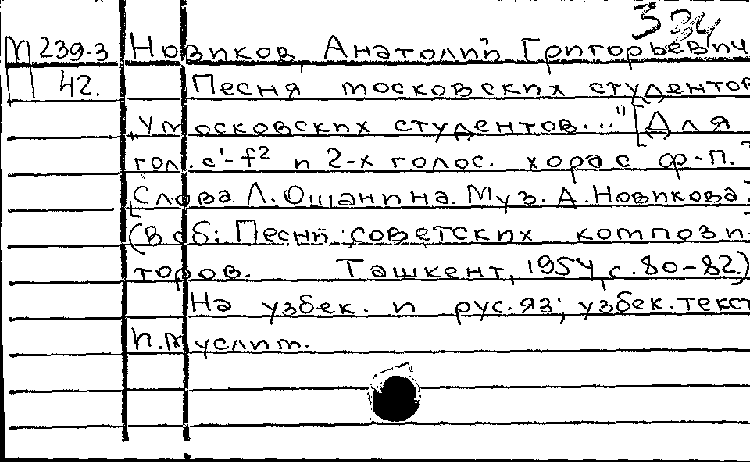 334
М 239-3 Новиков, Анатолий Григорьевич
П 42. Песня московских студентов
"У московских студентов..." [Для
гол. c¹-f² и 2-х голос. хора с ф-п.
Слова Л. Ошанина. Муз. А. Новикова.]
(В сб: Песни советских компози-
торов. Ташкент, 1954, с. 80-82.)
На узбек. и рус. яз; узбек. текст
П. Муслим.